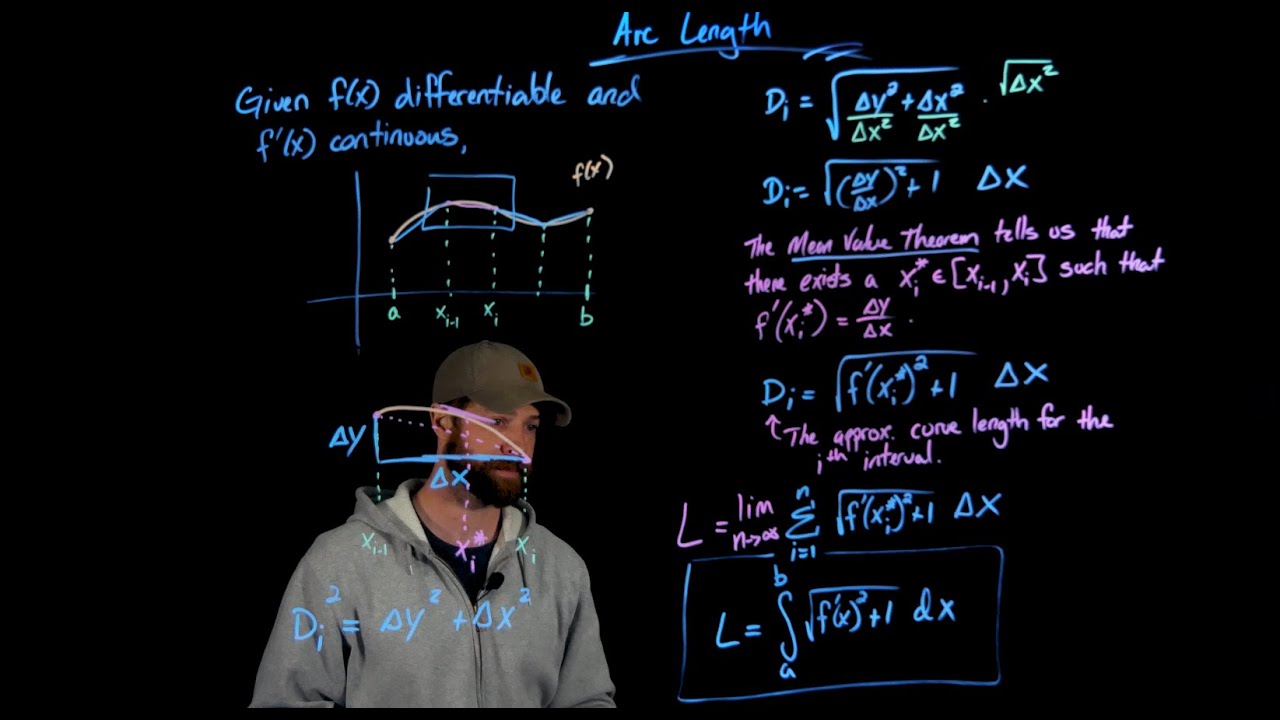 Arc Length
Given f(x) differentiable and
f'(x) continuous,
f(x)
a x_{i-1} x_i b
Δy
Δx
x_{i-1} x_i^* x_i
D_i^2 = Δy^2 + Δx^2
D_i = √(Δy^2/Δx^2 + Δx^2/Δx^2) · √Δx^2
D_i = √((Δy/Δx)^2 + 1) Δx
The Mean Value Theorem tells us that
there exists a x_i^* ∈ [x_{i-1}, x_i] such that
f'(x_i^*) = Δy/Δx .
D_i = √(f'(x_i^*)^2 + 1) Δx
↑ The approx. curve length for the
i^th interval.
L = lim_{n→∞} Σ_{i=1}^{n} √(f'(x_i^*)^2 + 1) Δx
L = ∫_a^b √(f'(x)^2 + 1) dx